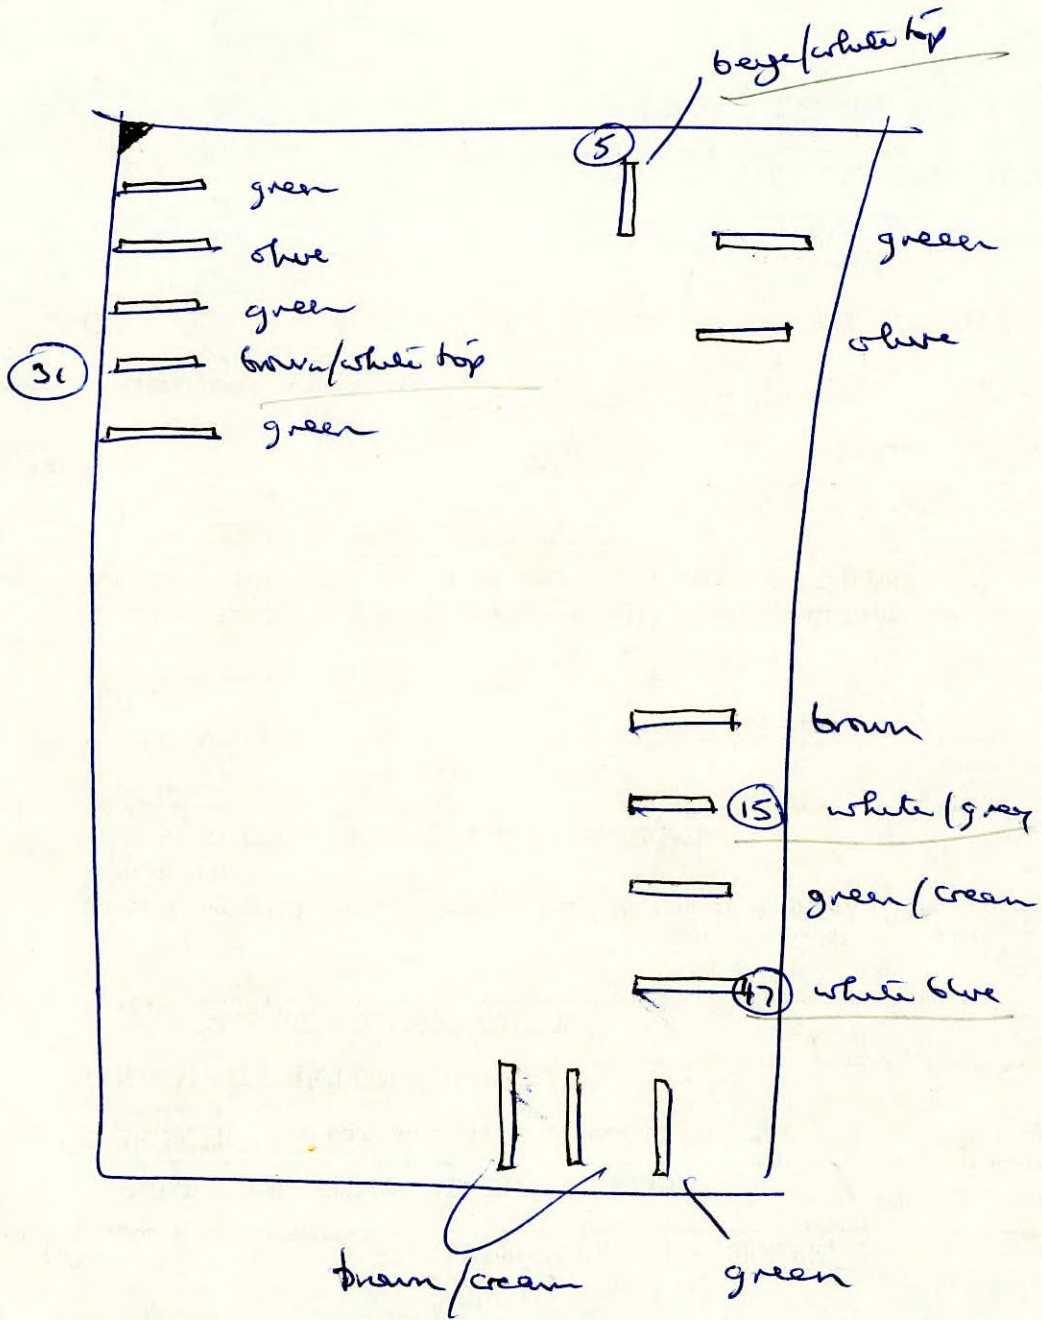 beige/white top
5
green
olive
green
brown/white top
green
greeen
olive
brown
15 white/grey
green/cream
47 white blue
brown/cream
green